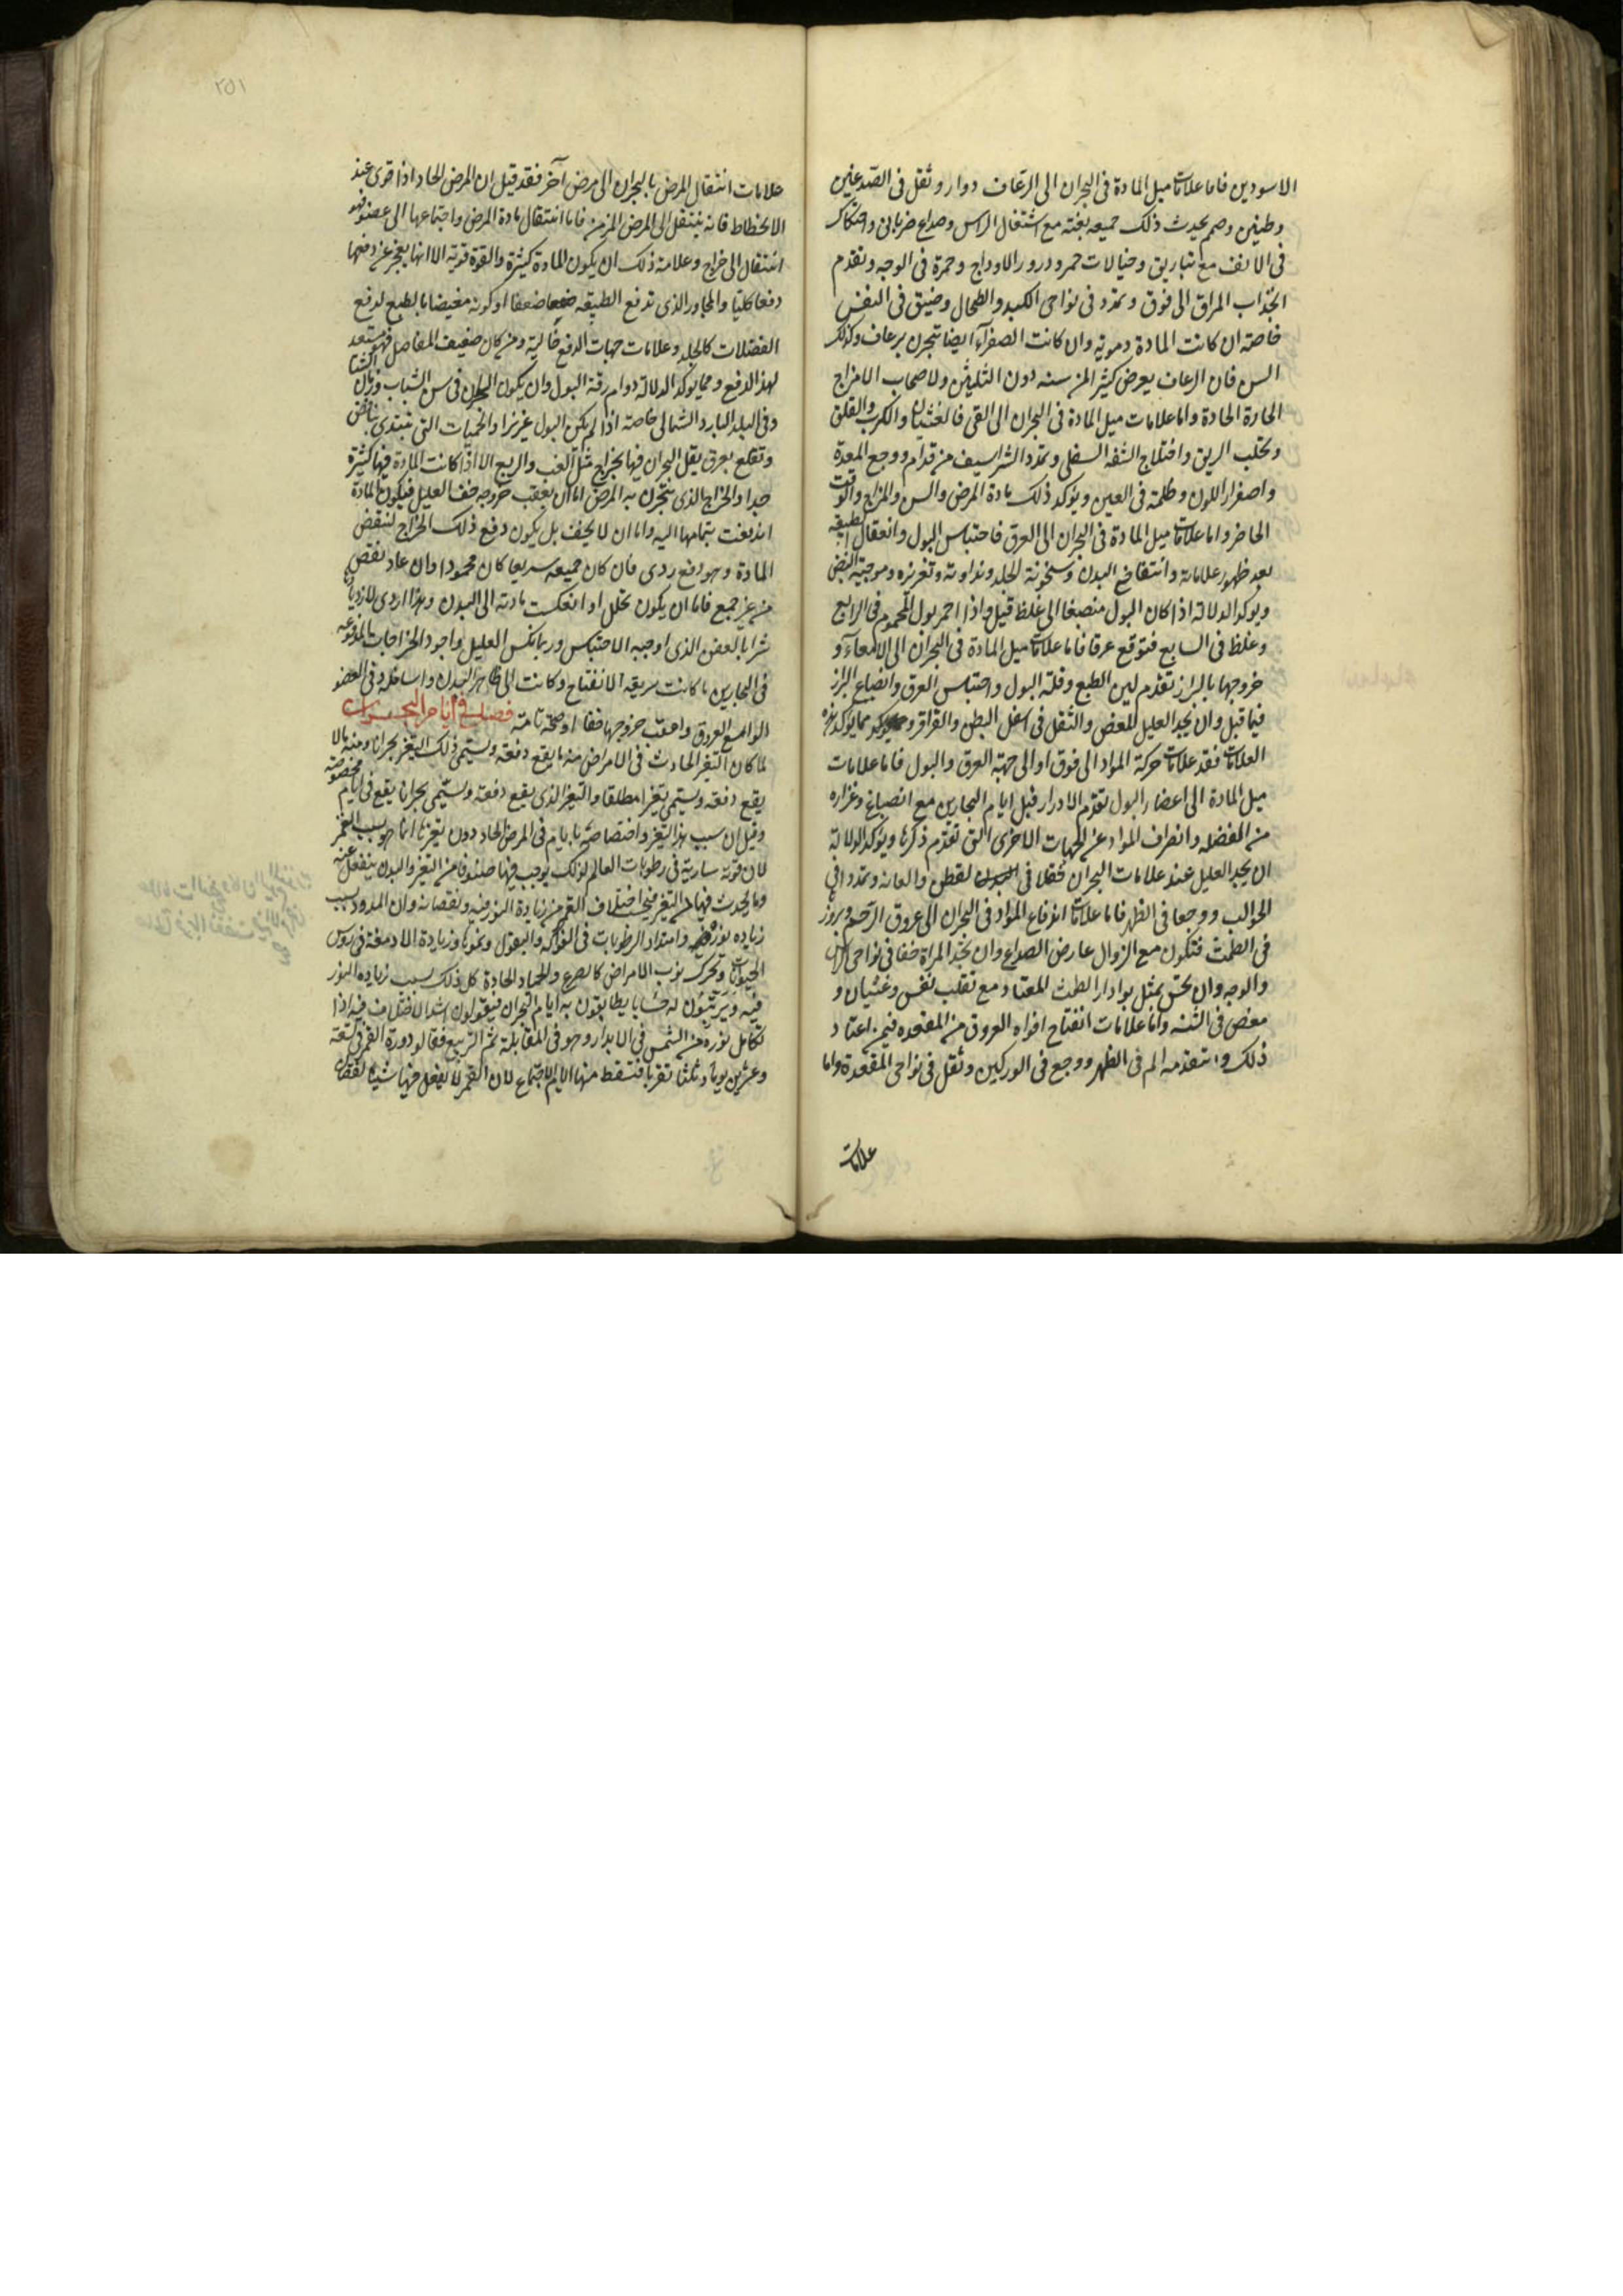 الاسودين فاما علامات ميل المادة فى البحران الى الرعاف دوار وثقل فى الصدغين
وطنين وصمم يحدث ذلك جميعه بغتة مع اشتغال الراس وصداع ضربانى واحتكاك
فى الانف مع تباريق وخيالات حمر ودرور الاوداج وحمرة فى الوجه وتقدم
انجذاب المراق الى فوق وتمدد فى نواحى الكبد والطحال وضيق فى النفس
خاصة ان كانت المادة دموية وان كانت الصفرآء ايضا تبحرن برعاف وكذلك
السن فان الرعاف يعرض كثيرا لمن سنه دون الثلثين ولاصحاب الامزاج
الحارة الحادة واما علامات ميل المادة فى البحران الى القى فالغثيان والكرب والقلق
وتحلب الريق واختلاج الشفة السفلى وتمدد الشراسيف من قدام ووجع المعدة
واصفرار اللون وظلمة فى العين ويؤكد ذلك مادة المرض والسن والمزاج والوقت
الحاضر واما علامات ميل المادة فى البحران الى العرق فاحتباس البول وانعقال الطبيعة
بعد ظهور علاماته وانتفاخ البدن وسخونة الجلد ونداوته وتغريزه وموجية النبض
ويؤكد الدلالة اذا كان البول منصبغا الى غلظ قيل واذا احمر بول المحموم فى الرابع
وغلظ فى السابع فتوقع عرقا فاما علامات ميل المادة فى البحران الى الامعاء و
خروجها بالبراز تقدم لين الطبع وقلة البول واحتباس العرق وانصباغ البراز
فيما قبل وان يجد العليل المغص والثقل فى اسفل البطن والقراقر ومما يؤكد هذه
العلامات فقد علامات حركة المواد الى فوق او الى جهة العرق والبول فاما علامات
ميل المادة الى اعضاء البول تقدم الادرار قبل ايام البحارين مع انصباغ وغزاره
من الفضله وانصراف المواد عن الجهات الاخرى التى تقدم ذكرها ويؤكد الدلالة
ان يجد العليل عند علامات البحران ثقلا فى القطن والعانه وتمددا فى
الحوالب ووجعا فى الظهر فاما علامات اندفاع المواد فى البحران الى عروق الرحم وبروز
فى الطمث فتكون مع الزوال عارض الصداع وان تجد المراة خفا فى نواحى الراس
والوجه وان تحس بمثل بوادر الطمث المعتاد مع تقلب نفس وغثيان و
مغص فى الثنه واما علامات انفتاح افواه العروق من المقعده فيمن اعتاد
ذلك وتقدمه الم فى الظهر ووجع فى الوركين وثقل فى نواحى المقعدة واما
علامات
٢٥١
علامات انتقال المرض بالبحران الى مرض آخر فقد قيل ان المرض الحاد اذا قوى عند
الانحطاط فانه ينتقل الى المرض المزمن فاما انتقال مادة المرض واجتماعها الى عضو فهو
انتقال الى خراج وعلامة ذلك ان يكون المادة كثيرة والقوة قوية الا انها يعجز عن دفعها
دفعا كليا والمجاور الذى تدفع الطبيعة ضعفا او كونه مغيضا بالطبع لدفع
الفضلات كالجلد وعلامات جهات الدفع خالية ومن كان ضعيف المفاصل فهو مستعد
لهذا الدفع ومما يؤكد الدلالة دوام رقة البول وان يكون البحران فى سن الشباب وزمان الشتا
وفى البلد البارد الشمالى خاصة اذا لم يكن البول غزيزا والحميات التى تبتدى بنافض
وتقلع بعرق يقل البحران فيها بخراج مثل الغب والربع الا اذا كانت المادة فيها كثيرة
جدا والخراج الذى يتبحرن به المرض اما ان يعقب خروجه خف العليل فيكون المادة
اندفعت بتمامها اليه واما ان لا يخف بل يكون دفع ذلك الخراج لنقص
المادة وهو دفع ردى فان كان جميعه سريعا كان محمودا وان عاد نقص
من غير جمع فاما ان يكون تحلل او انعكست مادته الى البدن وهذا اردى لازدياد
شرا بالعفن الذى اوجبه الاحتباس وربما نكس العليل واجود الخراجات المدفوعه
فى البحارين ما كانت سريعة الانفتاح وكانت الى ظاهر البدن واسافله وفى العضو
الواسع العروق واعقب خروجها خفا او صحة تامة فصل فى ايام البحران
لما كان التغير الحادث فى الامراض منه ما يقع دفعة ويسمى ذلك التغير بحرانا ومنه ما لا
يقع دفعة ويسمى تغيرا مطلقا والتغير الذى يقع دفعة ويسمى بحرانا يقع فى ايام مخصوصة
وقيل ان سبب هذا التغير واختصاصه بايام فى المرض الحاد دون غيرها انما هو بسبب القمر
لان قوته سارية فى رطوبات العالم لذلك يوجب فيها صنوفا من التغير والبدن ينفعل عنه
وما يحدث فيها من التغير اختلاف القمر من زيادة النور فيه ونقصانه وان المد بسبب
زياده نوره وامتداد الرطوبات فى الفواكه والبقول ونموها وزيادة الادمغة فى روس
الحيوانات وتحرك نوب الامراض كالصرع والحميات الحادة كل ذلك بسبب زياده النور
فيه ويرتبون له حسابا يطابقون به ايام البحران فيقولون اشد الاختلاف فيه اذا
تكامل نوره من الشمس فى الابدار وهو فى المقابلة ثم التربيع فقالو دورة القمر فى تسعة
وعشرين يوما وثلثا تقربا فتسقط منها الايام الاجتماع لان القمر لا يفعل فيها شيئا لنقصان